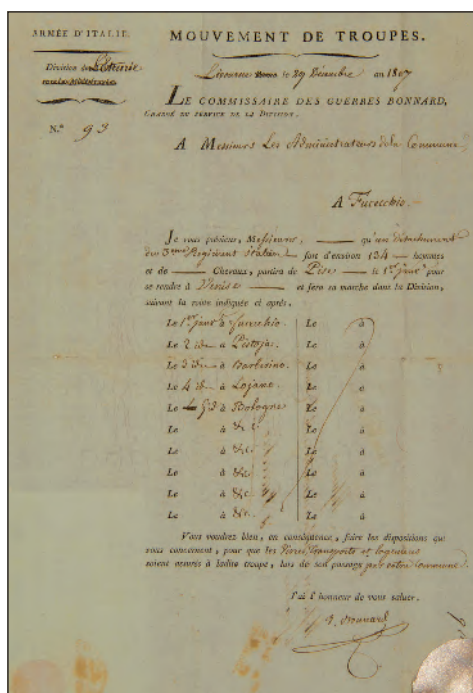 ARMÉE D'ITALIE.
MOUVEMENT DE TROUPES.
Division de l'Etrurie
Livourne le 29 Décembre an 1807
LE COMMISSAIRE DES GUERRES BONNARD,
CHARGÉ DU SERVICE DE LA DIVISION,
N.° 93
A Messieurs Les Administrateurs de la Commune
A Fucecchio.
Je vous préviens, Messieurs, — qu'un Détachement
du 3eme Régiment italien fort d'environ 134 hommes
et de — Chevaux, partira de Pise le 1er janv.r pour
se rendre à Venise — et fera sa marche dans la Division,
suivant la route indiquée ci après,
Le 1er janv.r à fucecchio. Le à
Le 2 id— à Pistoja. Le à
Le 3 id— à Barberino. Le à
Le 4 id— à Lojano. Le à
Le 5 à Bologne Le à
Le à &c Le à
Le à &c Le à
Le à &c Le à
Le à &c Le à
Le à &c Le à
Vous voudrez bien, en conséquence, faire les dispositions qui
vous concernent, pour que les Vivres, Transports et logemens
soient assurés à ladite troupe, lors de son passage par votre Commune.
J'ai l'honneur de vous saluer.
Bonnard